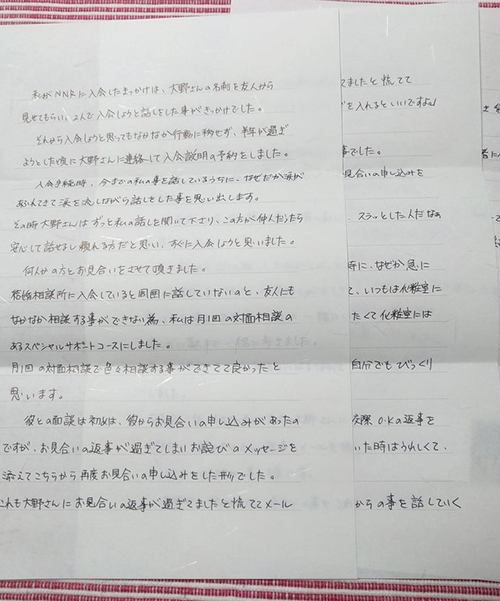 私がNNRに入会したきっかけは、大野さんの名刺を友人から
見せてもらい、2人で入会しようと話しをした事がきっかけでした。
それから入会しようと思ってもなかなか行動に移せず、半年が過ぎ
ようとした頃に大野さんに連絡して入会説明の予約をしました。
入会手続時、今までの私の事を話しているうちに、なぜだか涙が
あふれてきて涙を流しながら話しをした事を思い出します。
その時大野さんはずっと私の話しを聞いて下さり、この方が仲人だったら
安心して話せるし頼れる方だと思い、すぐに入会しようと思いました。
何人かの方とお見合いをさせて頂きました。
結婚相談所に入会していると周囲に話していないのと、友人にも
なかなか相談する事ができない為、私は月1回の対面相談の
あるスペシャルサポートコースにしました。
月1回の対面相談で色々相談する事ができてて良かったと
思います。
彼との面談は初めは、彼からお見合いの申し込みがあったの
ですが、お見合いの返事が過ぎてしまいお詫びのメッセージを
添えてこちらから再度お見合いの申し込みをした形でした。
これも大野さんにお見合いの返事が過ぎてましたと慌ててメール
てましたと慌てて
を入れるといいですよ
事でした。
見合いの申し込みを
、スラッとした人だなぁ
時に、なぜか急に
て、いつもは化粧室に
たくて化粧室には
自分でもびっくり
交際O・Kの返事を
いた時はうれしくて、
からの事を話していく